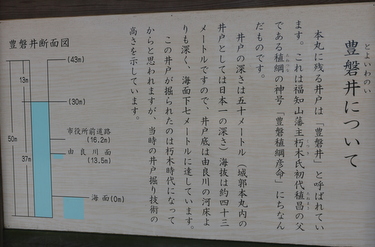 豊磐井について
とよいわのい
本丸に残る井戸は「豊磐井」と呼ばれてい
ます。これは福知山藩主朽木氏初代稙昌の父
である稙綱の神号「豊磐稙綱彦命」にちなん
だものです。
井戸の深さは五十メートル（城郭本丸内の
井戸としては日本一の深さ）海抜は約四十三
メートルですので、井戸底は由良川の河床よ
りも深く、海面下七メートルに達しています。
この井戸が掘られたのは朽木時代になって
からと思われますが、当時の井戸掘り技術の
高さを示しています。
豊磐井断面図
(43m)
13m
(30m)
50m
37m
市役所前道路
(16.2m)
由良川面
(13.5m)
海面(0m)